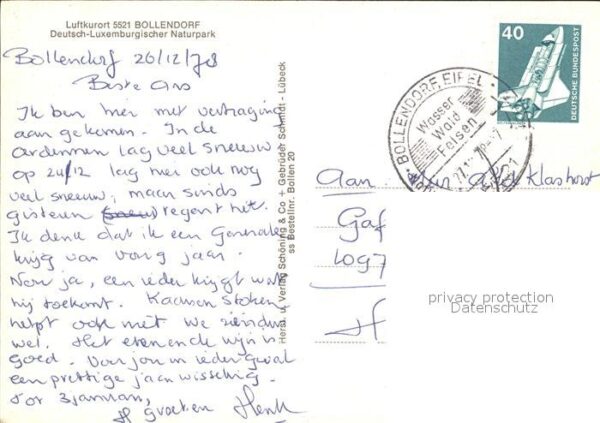 Luftkurort 5521 BOLLENDORF
Deutsch-Luxemburgischer Naturpark
Bollendorf 26/12/78
Beste Ans
Ik ben hier met vertraging
aan gekomen. In de
Ardennen lag veel sneeuw
op 24/12 lag hier ook nog
veel sneeuw, maar sinds
gisteren regent het.
Ik denk dat ik een
krijg van vorig jaar.
Nou ja, een ieder krijgt wat
hij toekomt. Kaarsen stoken
helpt ook niet we zien dus
wel. Het eten en de wijn is
Goed. Voor jou in ieder geval
een prettige jaarwisseling.
Tot 3 januari,
groeten Henk
Herst. u. Verlag Schöning & Co + Gebrüder Schmidt - Lübeck
ss Bestellnr. Bollen 20
40
DEUTSCHE BUNDESPOST
BOLLENDORF, EIFEL
Wasser
Wald
Felsen
5521
Aan
Gaf
1097
H
privacy protection
Datenschutz